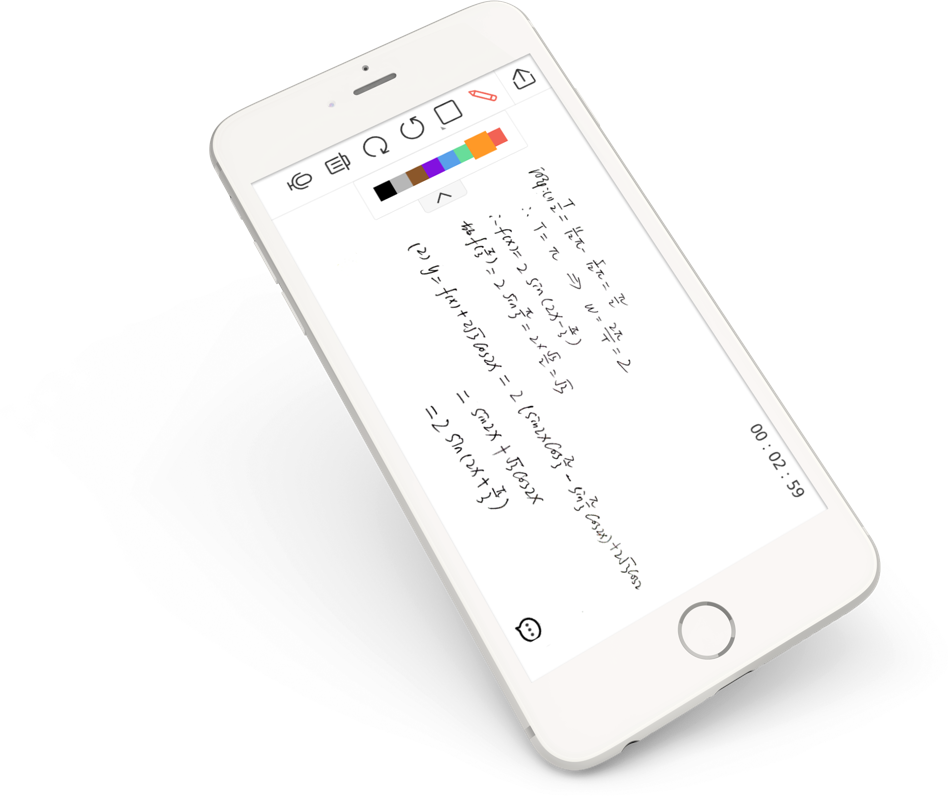 (1) T/2 = 11/12π - 5/12π = π/2
∴ T = π ⇒ w = 2π/T = 2
∴ f(x) = 2 sin(2x - π/3)
故 f(π/3) = 2 sin π/3 = 2×√3/2 = √3
(2) y = f(x) + 2√3cos2x = 2 (sin2xcosπ/3 - sinπ/3cos2x) + 2√3cos2
= sin2x + √3cos2x
= 2 sin(2x + π/3)
00:02:59